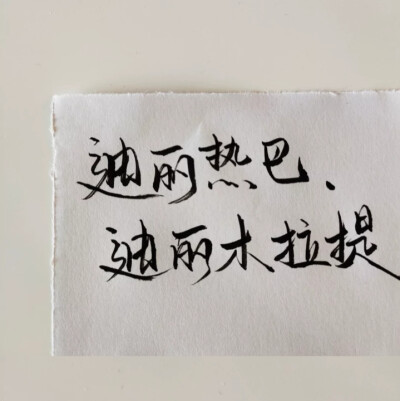 迪丽热巴、
迪丽木拉提